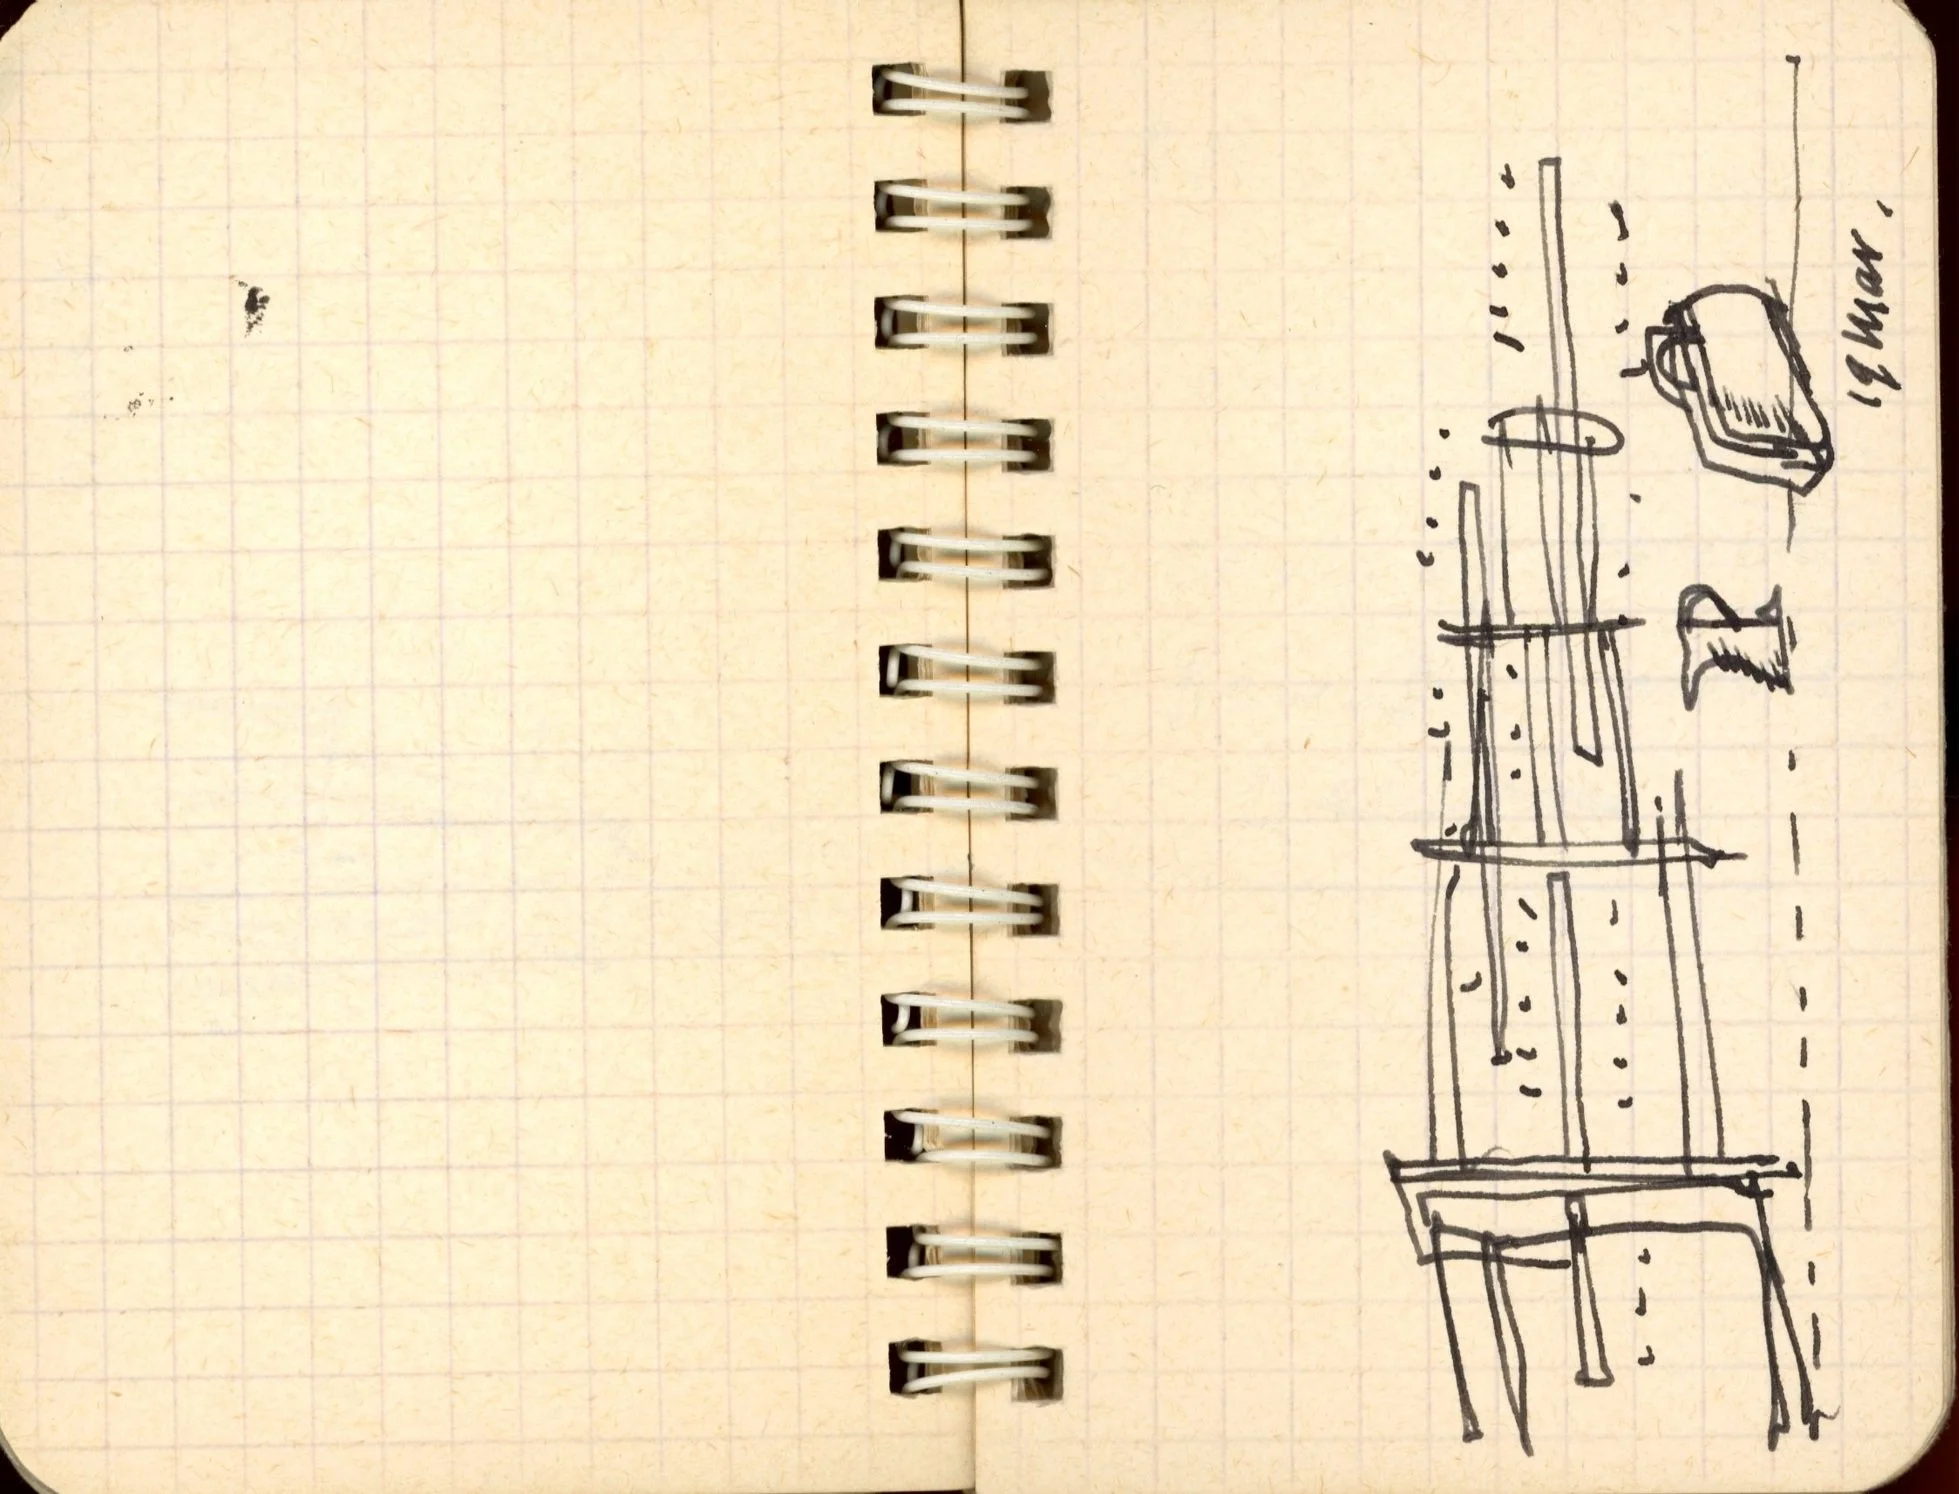 19 Mar.